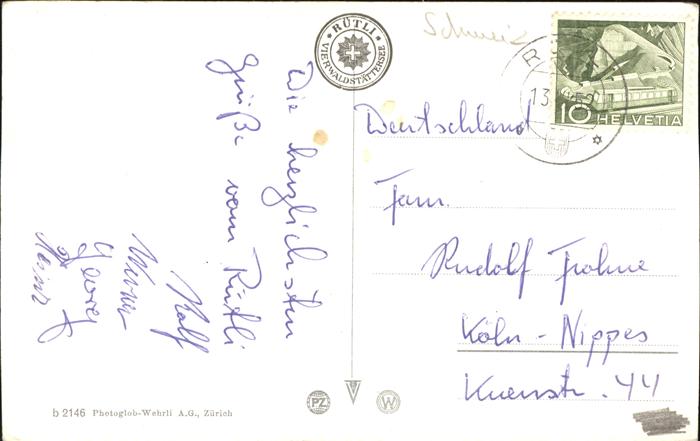 Schweiz
RÜTLI
VIERWALDSTÄTTERSEE
10 HELVETIA
13
Die herzlichsten
Grüße vom Rütli
Ralf
Werner
Georg
Deutschland
Fam.
Rudolf Frohne
Köln - Nippes
Kuenstr. 44
b 2146 Photoglob-Wehrli A.G., Zürich
PZ
W